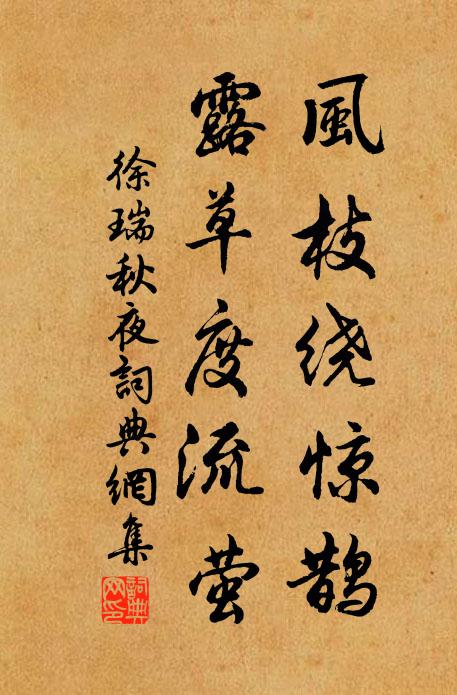 風枝绕惊鵲
露草度流萤
徐瑞秋夜詞典網集
詞典网印